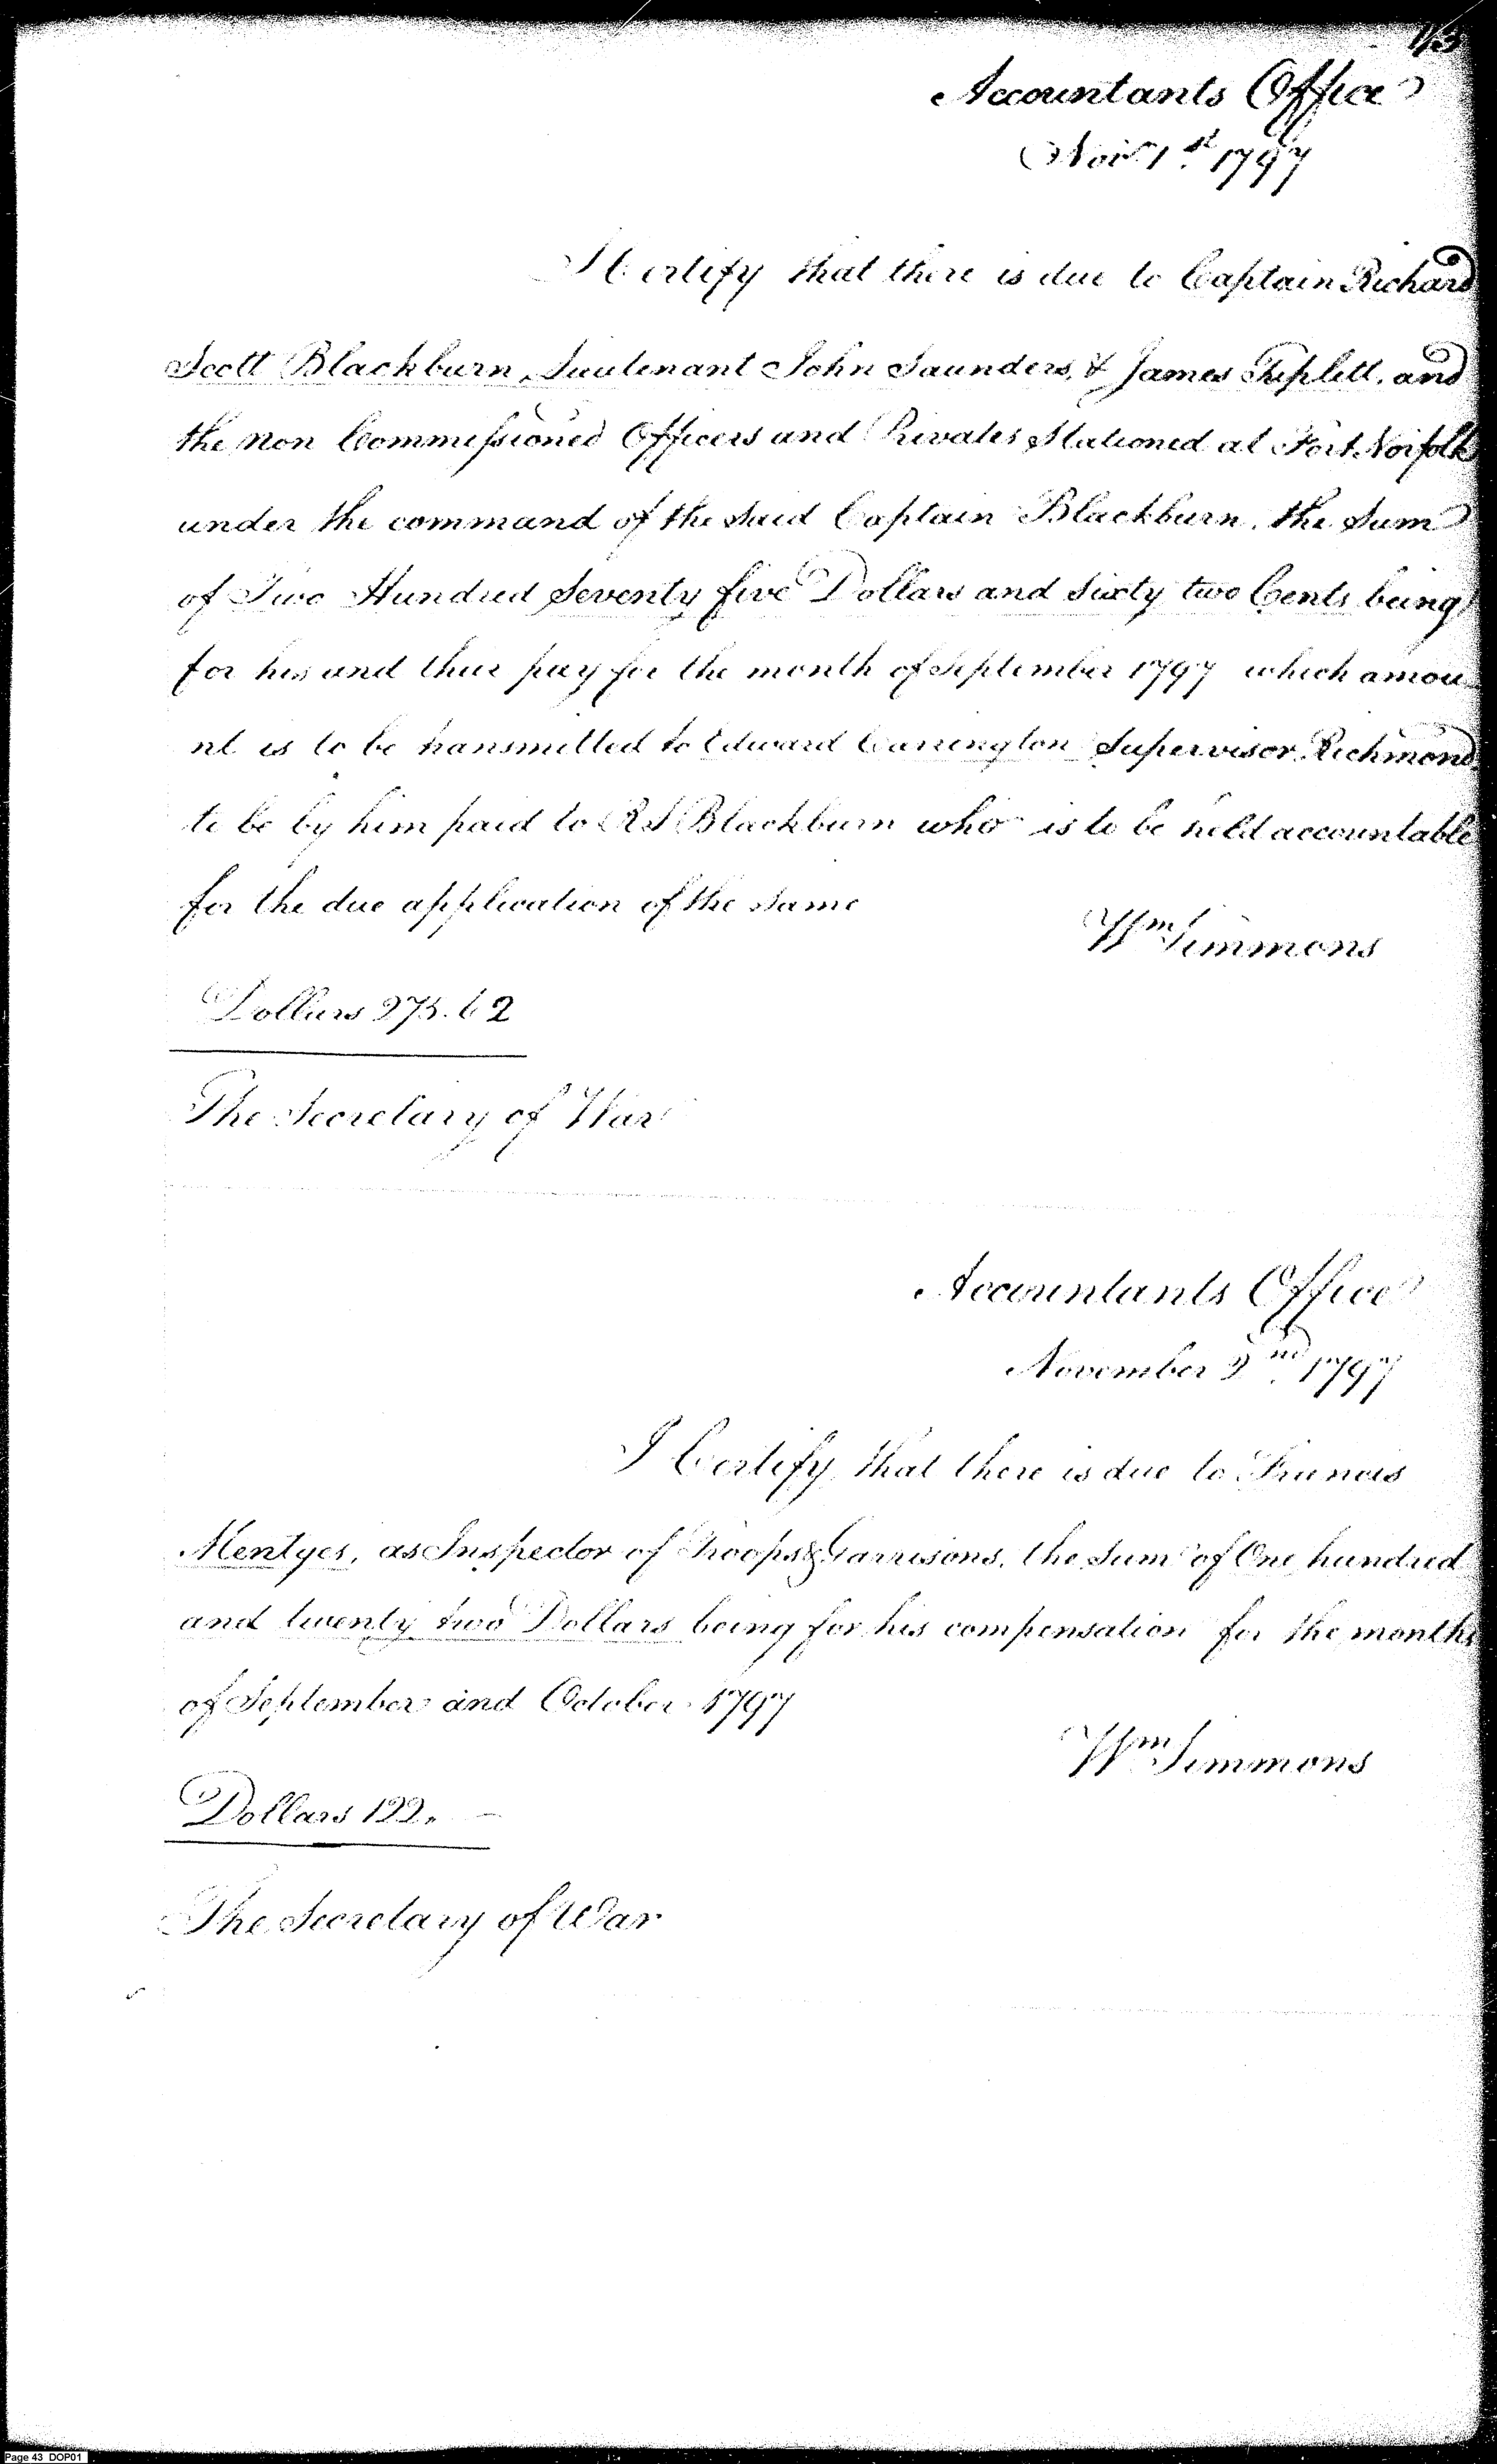 43
Accountants Office
Novr 1st 1797
I Certify that there is due to Captain Richard
Scott Blackburn, Lieutenant John Saunders, & James Triplett, and
the non Commissioned Officers and Privates Stationed at Fort Norfolk
under the command of the said Captain Blackburn, the Sum
of Two Hundred Seventy five Dollars and Sixty two Cents being
for his and their pay for the month of September 1797 which amou
nt is to be transmitted to Edward Carrington Supervisor Richmond
to be by him paid to R S Blackburn who is to be held accountable
for the due application of the same
Wm Simmons
Dollars 275.62
The Secretary of War
Accountants Office
November 2nd 1797
I Certify that there is due to Francis
Mentges, as Inspector of Troops & Garrisons, the Sum of One hundred
and twenty two Dollars being for his compensation for the months
of September and October 1797
Wm Simmons
Dollars 122.
The Secretary of War
Page 43 DOP01